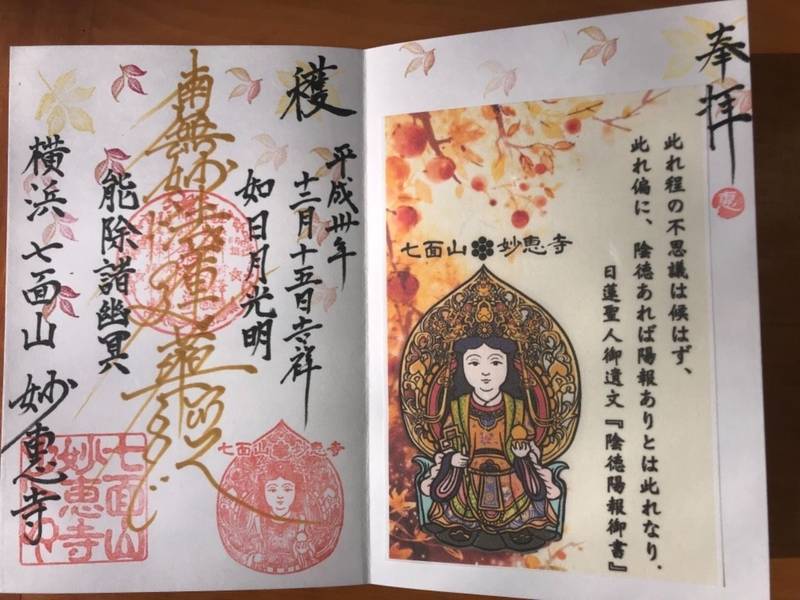 奉拝
此れ程の不思議は候はず、
此れ偏に、陰徳あれば陽報ありとは此れなり.
日蓮聖人御遺文『陰徳陽報御書』
七面山 妙恵寺
平成卅年
十二月十五日吉祥
穫
如日月光明
南無妙法蓮華経
能除諸幽冥
横浜 七面山 妙恵寺
七面山 妙恵寺
七面山
妙恵寺